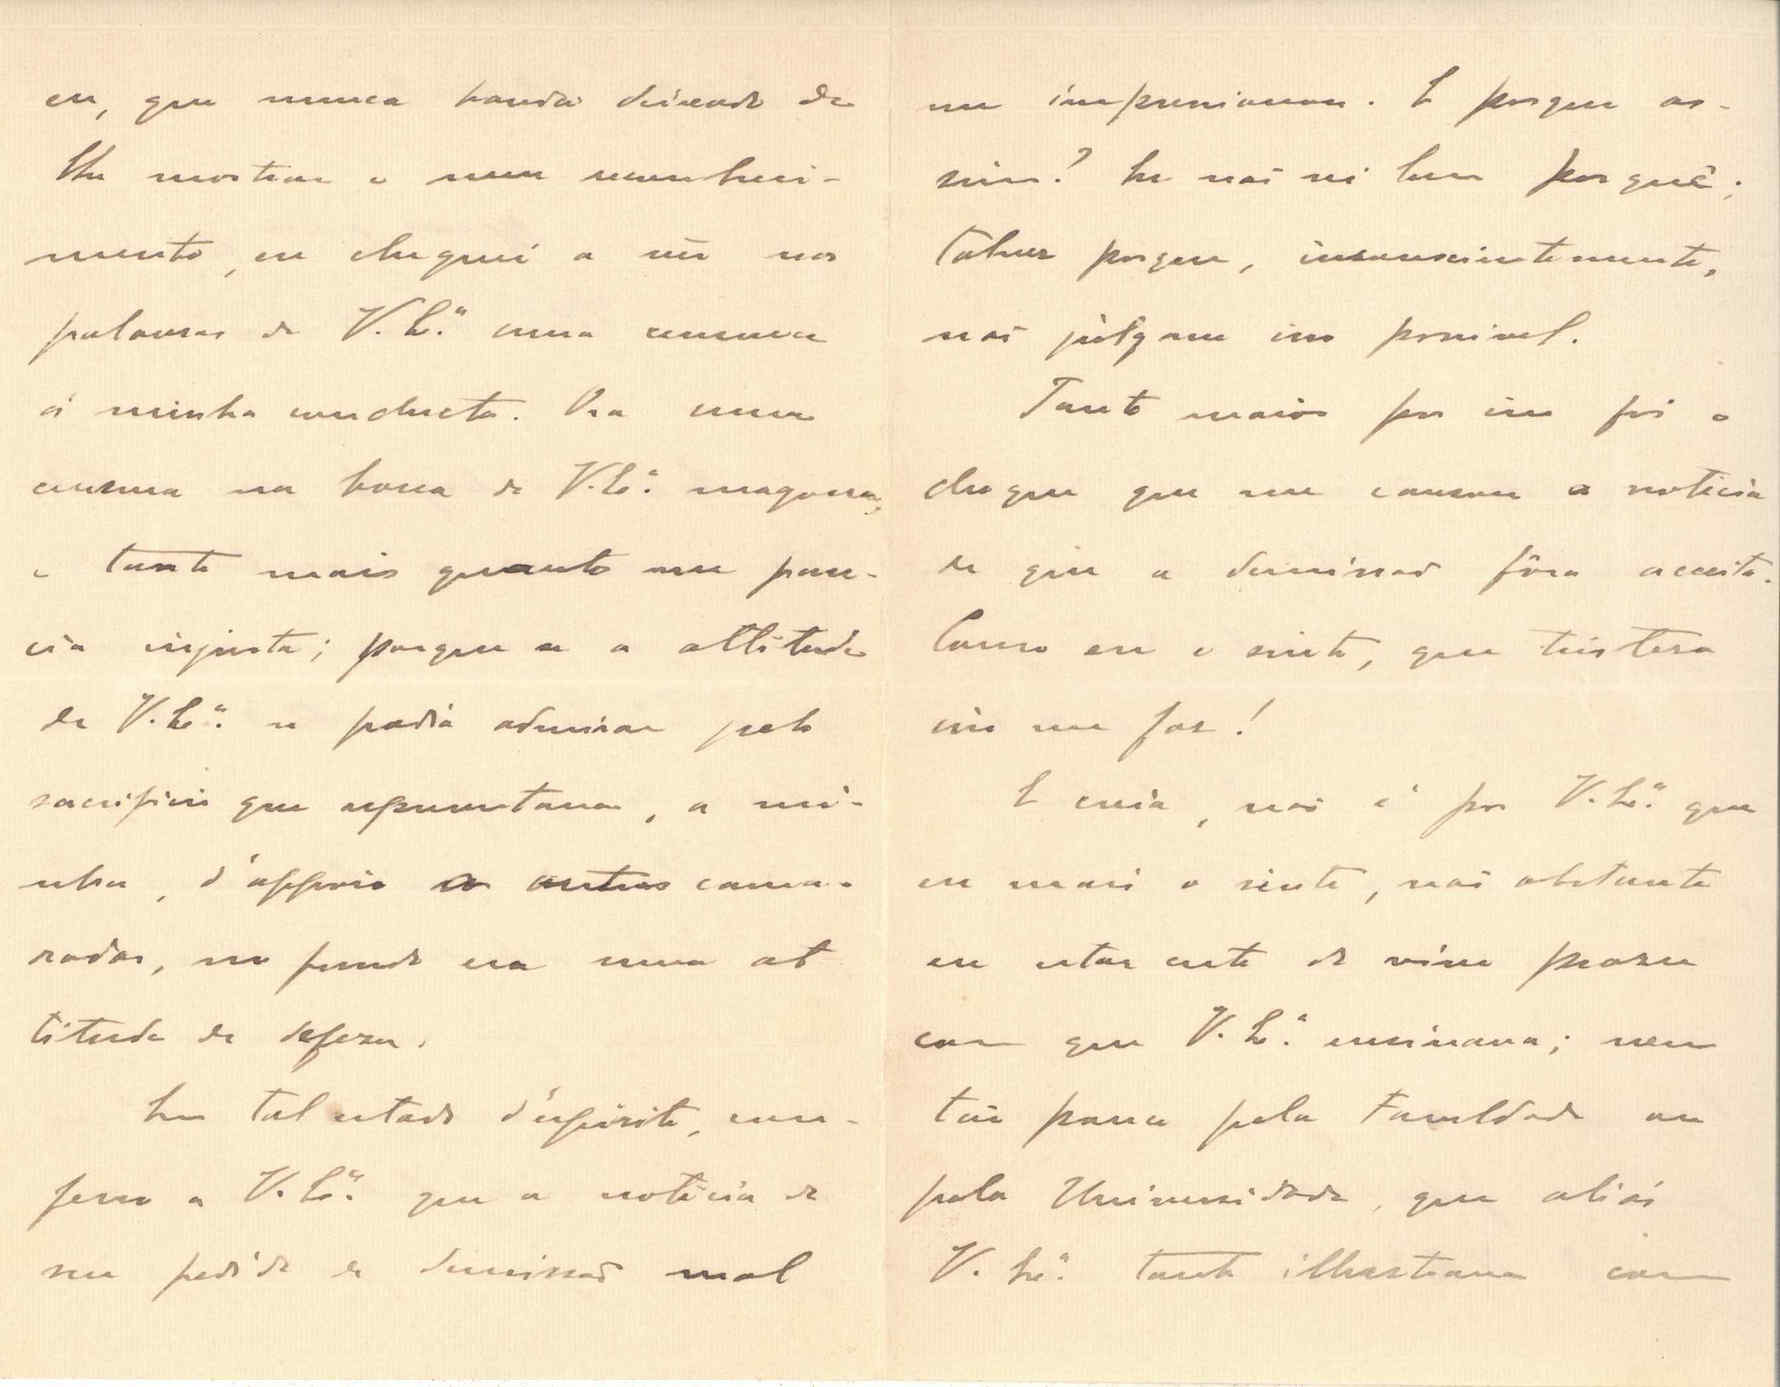 eu, que nunca havia deixado de
lhe mostrar o meu reconheci-
mento, eu cheguei a vêr nas
palavras de V. Ex.ª uma censura
á minha conducta. Ora uma
censura na bocca de V. Ex.ª magoava,
e tanto mais quanto me pare-
cia injusta; porque se a attitude
de V. Ex.ª se podia admirar pelo
sacrificio que representava, a mi-
nha, d'appoio a outros cama-
radas, no fundo era uma at
titude de defeza.
Em tal estado d'espirito, con-
fesso a V. Ex.ª que a noticia do
seu pedido de demissão mal
me impressionou. E porque as-
sim? Eu não sei bem porquê;
talvez porque, inconscientemente,
não julgasse isso possivel.
Tanto maior por isso foi o
choque que me causou a noticia
de que a demissão fôra acceita.
Como eu o sinto, que tristeza
isso me faz!
E creia, não é por V. Ex.ª que
eu mais o sinto, não obstante
eu estar certo do vivo prazer
com que V. Ex.ª ensinava; nem
tão pouco pela Faculdade ou
pela Universidade, que aliás
V. Ex.ª tanto illustrava com